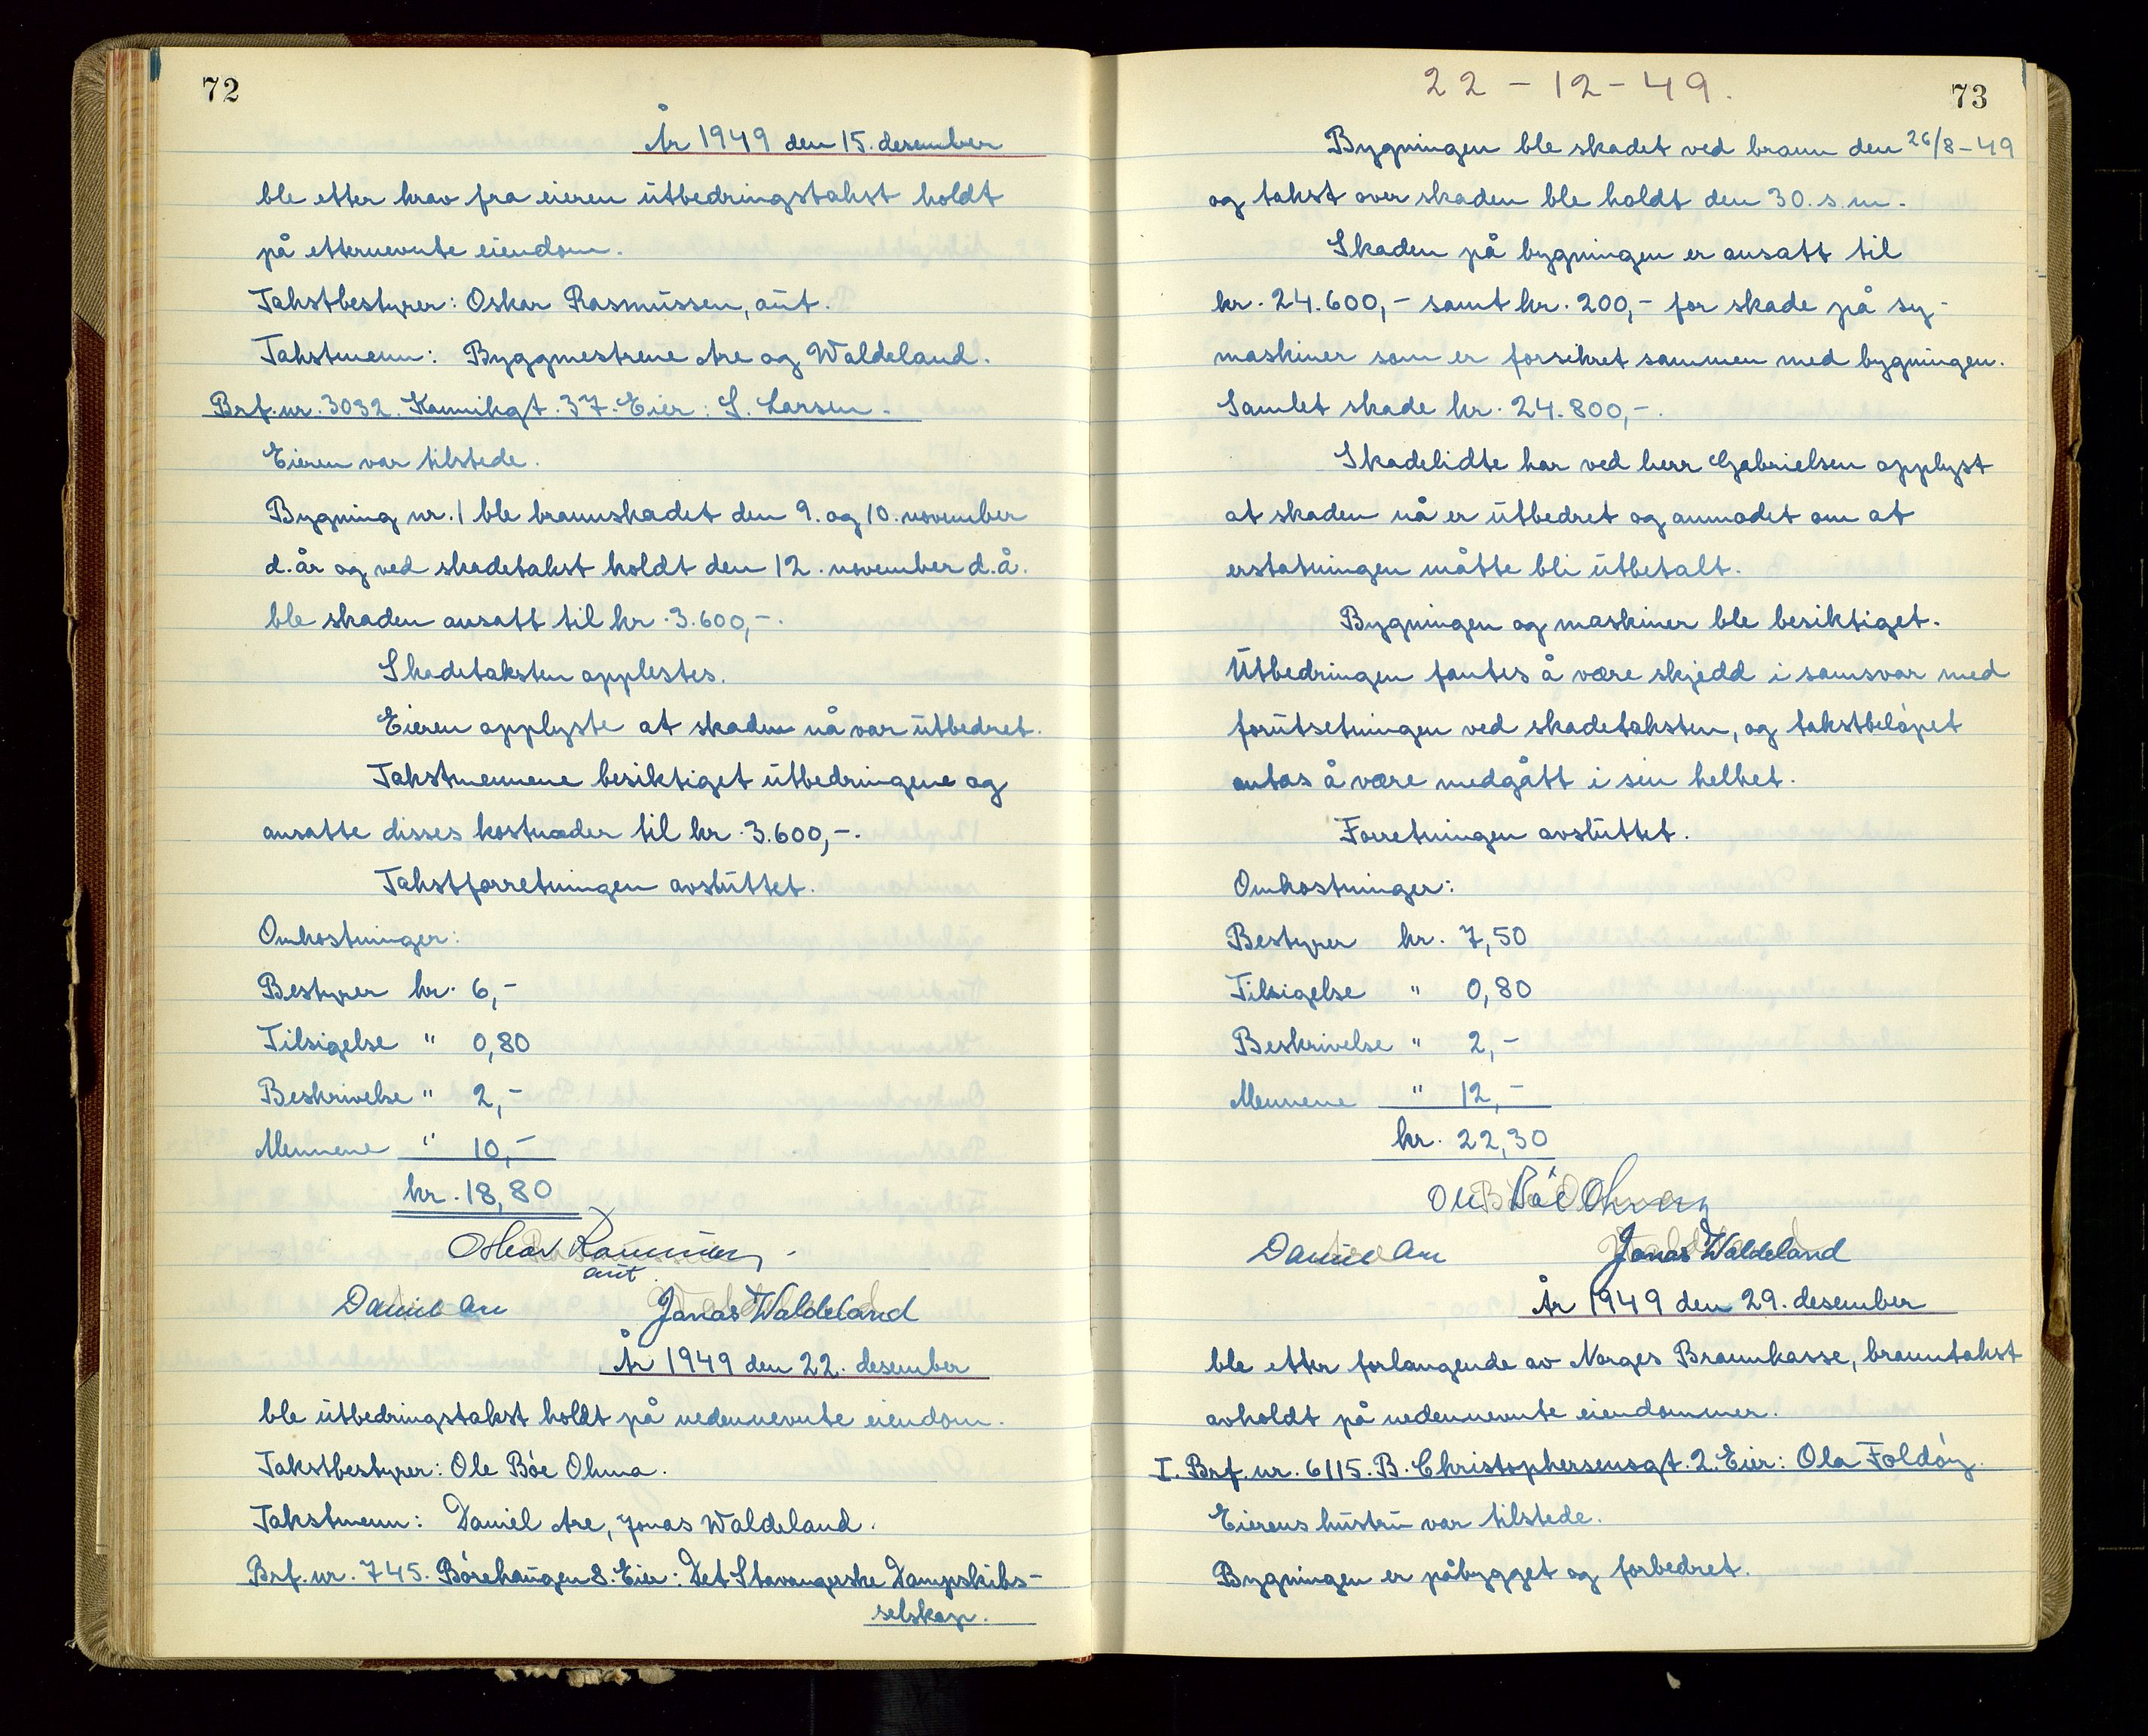 72
År 1949 den 15. desember
ble etter krav fra eieren utbedringstakst holdt
på etternevnte eiendom.
Takstbestyrer: Oskar Rasmussen, aut.
Takstmenn: Byggmestrene Are og Waldeland.
Brf. nr. 3032. Kannikgt. 37. Eier: S. Larsen.
Eieren var tilstede.
Bygning nr. 1 ble brannskadet den 9. og 10. november
d. år og ved skadetakst holdt den 12. november d.å.
ble skaden ansatt til kr. 3.600,-.
Skadetaksten opplestes.
Eieren opplyste at skaden nå var utbedret.
Takstmennene besiktiget utbedringene og
ansatte disses kostnader til kr. 3.600,-.
Takstforretningen avsluttet.
Omkostninger:
Bestyrer kr. 6,-
Tilsigelse " 0,80
Beskrivelse " 2,-
Mennene " 10,-
kr. 18,80
Oskar Rasmussen
aut
Daniel Are Jonas Waldeland
År 1949 den 22. desember
ble utbedringstakst holdt på nedennevnte eiendom.
Takstbestyrer: Ole Bóe Ohma.
Takstmenn: Daniel Are, Jonas Waldeland.
Brf. nr. 745. Börehaugen 8. Eier: Det Stavangerske Dampskibs-
selskap.
22-12-49.
73
Bygningen ble skadet ved brann den 26/8-49
og takst over skaden ble holdt den 30. s.m.
Skaden på bygningen er ansatt til
kr. 24.600,- samt kr. 200,- for skade på sy-
maskiner som er forsikret sammen med bygningen.
Samlet skade kr. 24.800,-.
Skadelidte har ved herr Gabrielsen opplyst
at skaden nå er utbedret og anmodet om at
erstatningen måtte bli utbetalt.
Bygningen og maskiner ble besiktiget.
Utbedringen fantes å være skjedd i samsvar med
forutsetningen ved skadetaksten, og takstbelópet
antas å være medgått i sin helhet.
Forretningen avsluttet.
Omkostninger:
Bestyrer kr. 7,50
Tilsigelse " 0,80
Beskrivelse " 2,-
Mennene " 12,-
kr. 22,30
Ole Bóe Ohma
Daniel Are Jonas Waldeland
År 1949 den 29. desember
ble etter forlangende av Norges Brannkasse, branntakst
avholdt på nedennevnte eiendommer.
I. Brf. nr. 6115. B. Christophersensgt. 2. Eier: Ola Foldóy.
Eierens hustru var tilstede.
Bygningen er påbygget og forbedret.